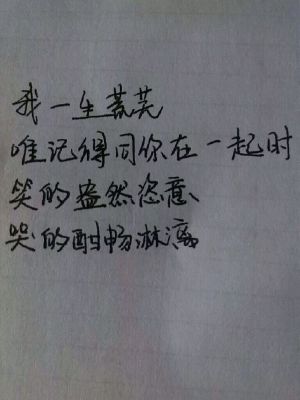 我一生荒芜
唯记得同你在一起时
笑的盎然恣意、
哭的酣畅淋漓